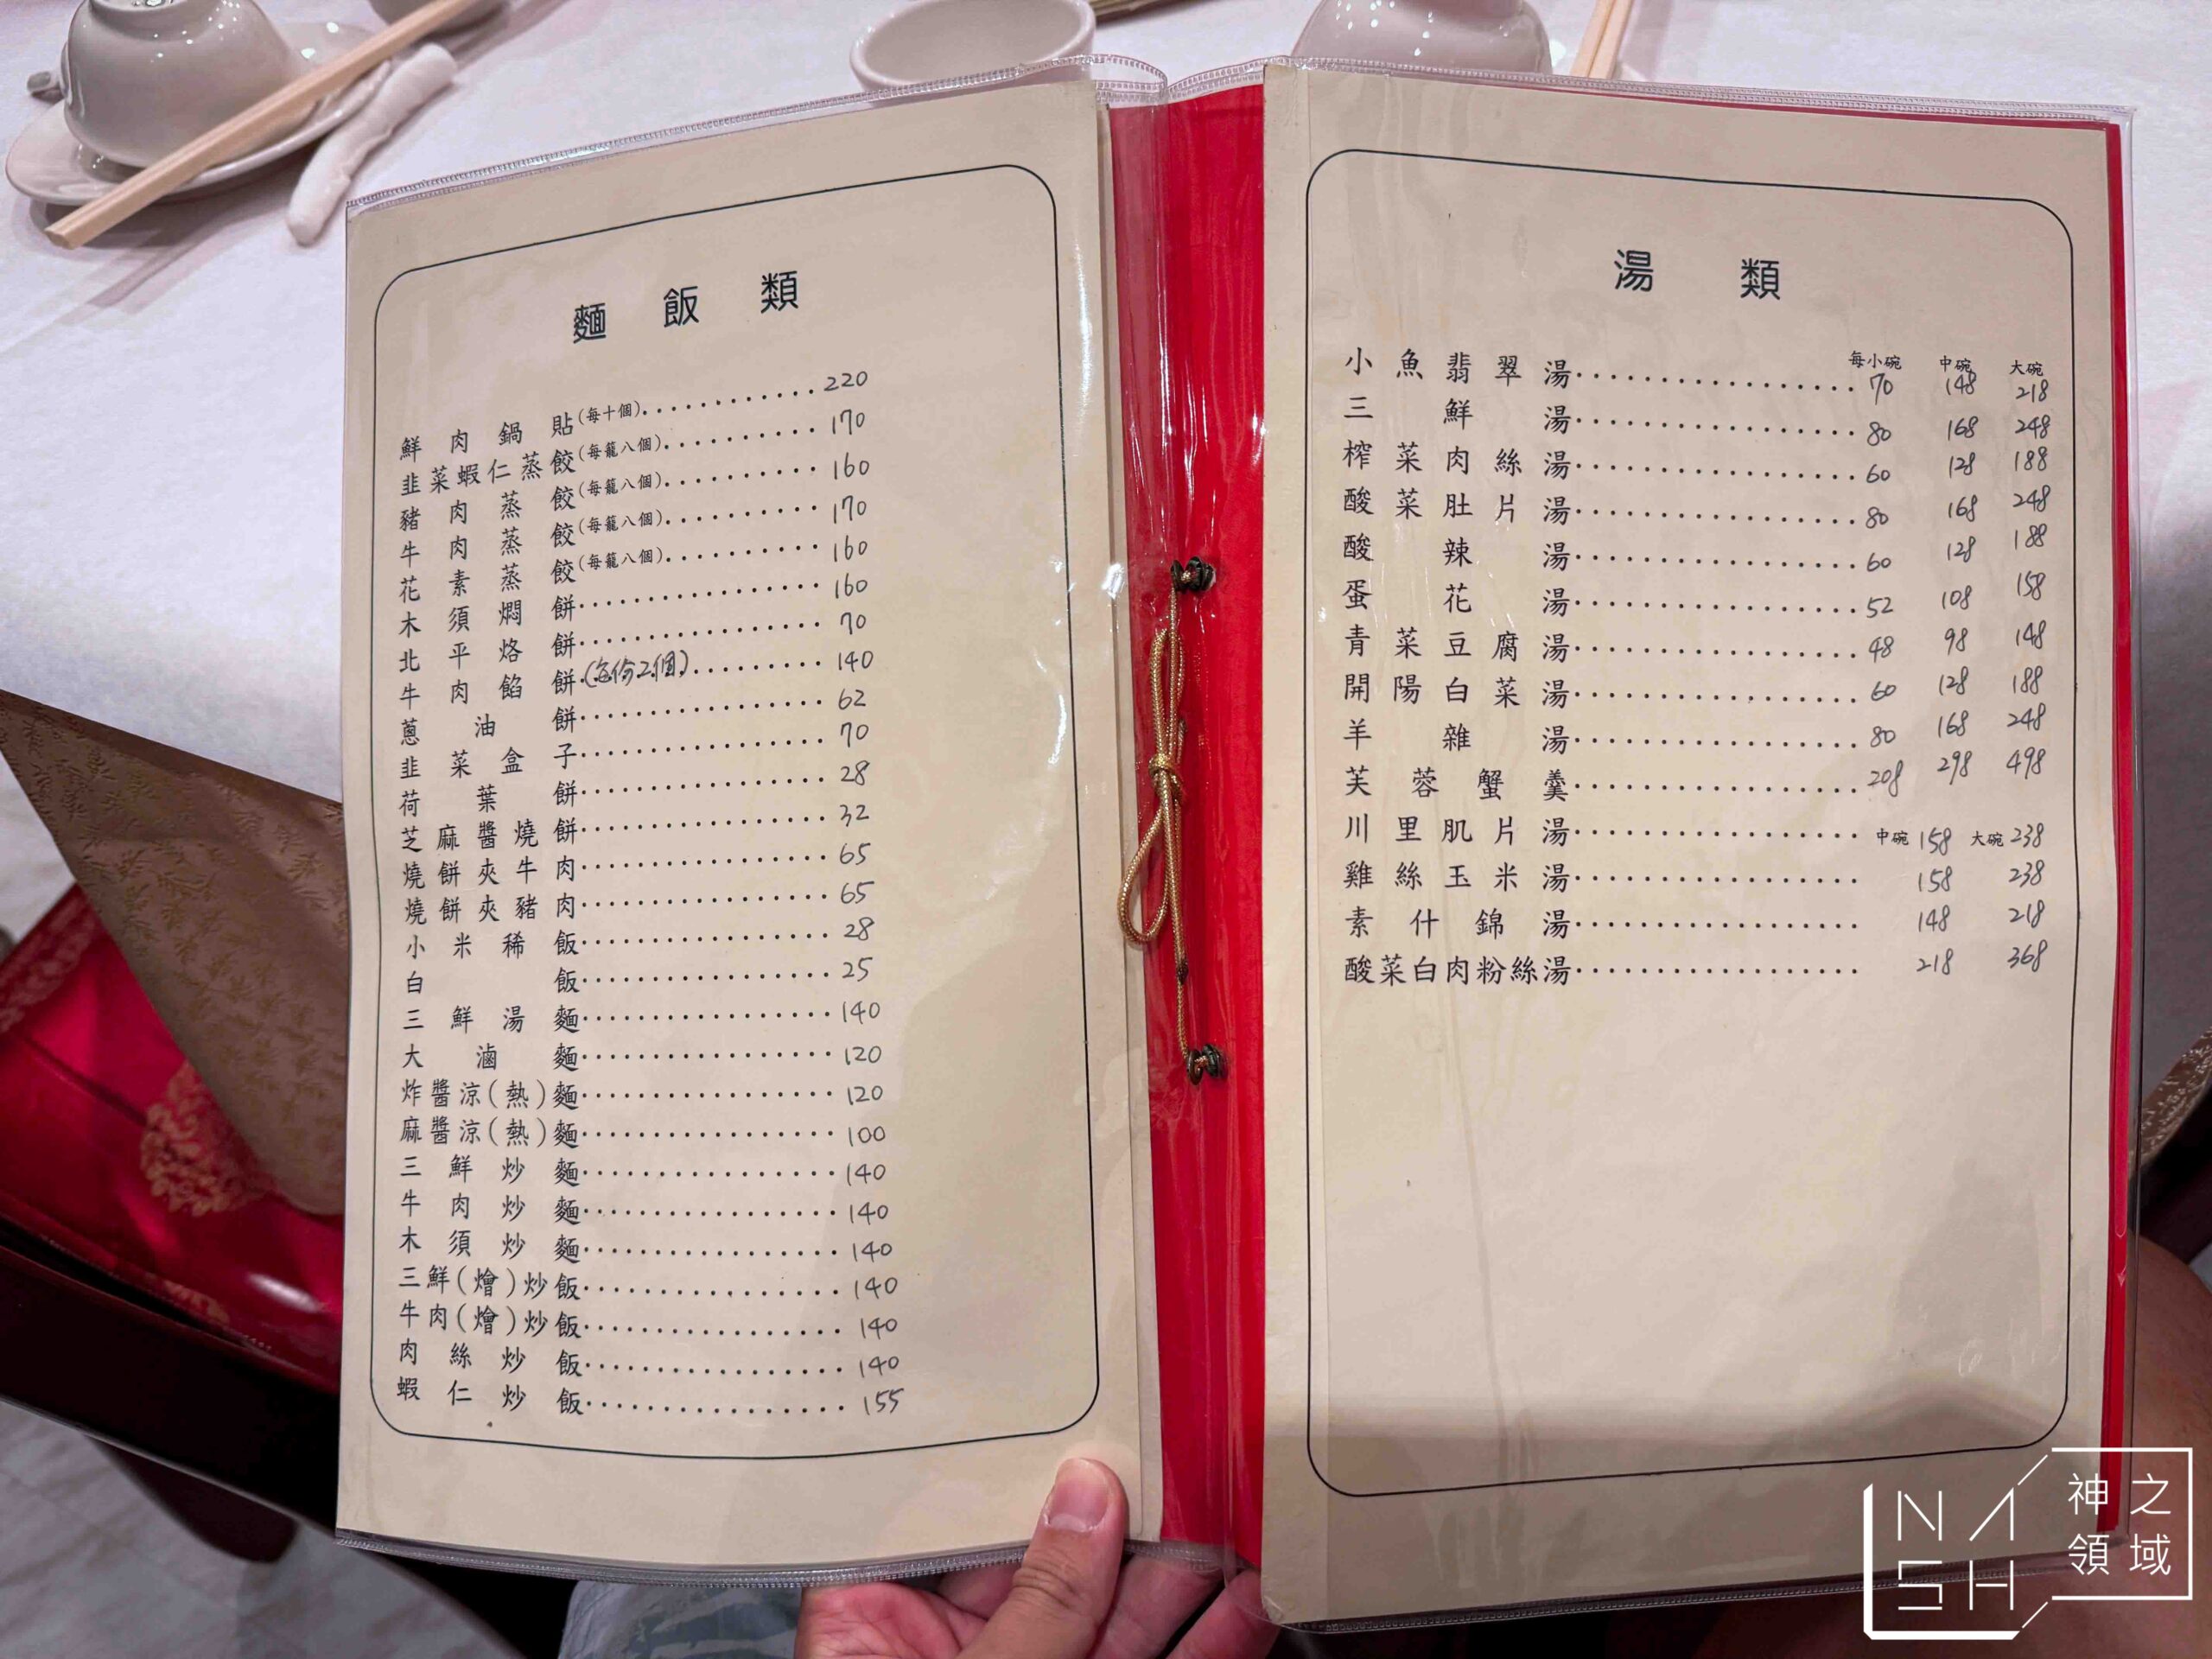 麵飯類
鮮肉鍋貼(每十個)............220
韭菜蝦仁蒸餃(每籠八個)..........170
豬肉蒸餃(每籠八個)..........160
牛肉蒸餃(每籠八個)..........170
花素蒸餃(每籠八個)..........160
木須燜餅................160
北平烙餅................70
牛肉餡餅(每份2個)..........140
蔥油餅................62
韭菜盒子................70
荷葉餅................28
芝麻醬燒餅................32
燒餅夾牛肉................65
燒餅夾豬肉................65
小米稀飯................28
白飯................25
三鮮湯麵................140
大滷麵................120
炸醬涼(熱)麵................120
麻醬涼(熱)麵................100
三鮮炒麵................140
牛肉炒麵................140
木須炒麵................140
三鮮(燴)炒飯................140
牛肉(燴)炒飯................140
肉絲炒飯................140
蝦仁炒飯................155
湯類
每小碗 中碗 大碗
小魚翡翠湯................70 148 218
三鮮湯................80 168 248
榨菜肉絲湯................60 128 188
酸菜肚片湯................80 168 248
酸辣湯................60 128 188
蛋花湯................52 108 158
青菜豆腐湯................48 98 148
開陽白菜湯................60 128 188
羊雜湯................80 168 248
芙蓉蟹羹................208 298 498
川里肌片湯................中碗 158 大碗 238
雞絲玉米湯................158 238
素什錦湯................148 218
酸菜白肉粉絲湯................218 368
NASH
神之領域